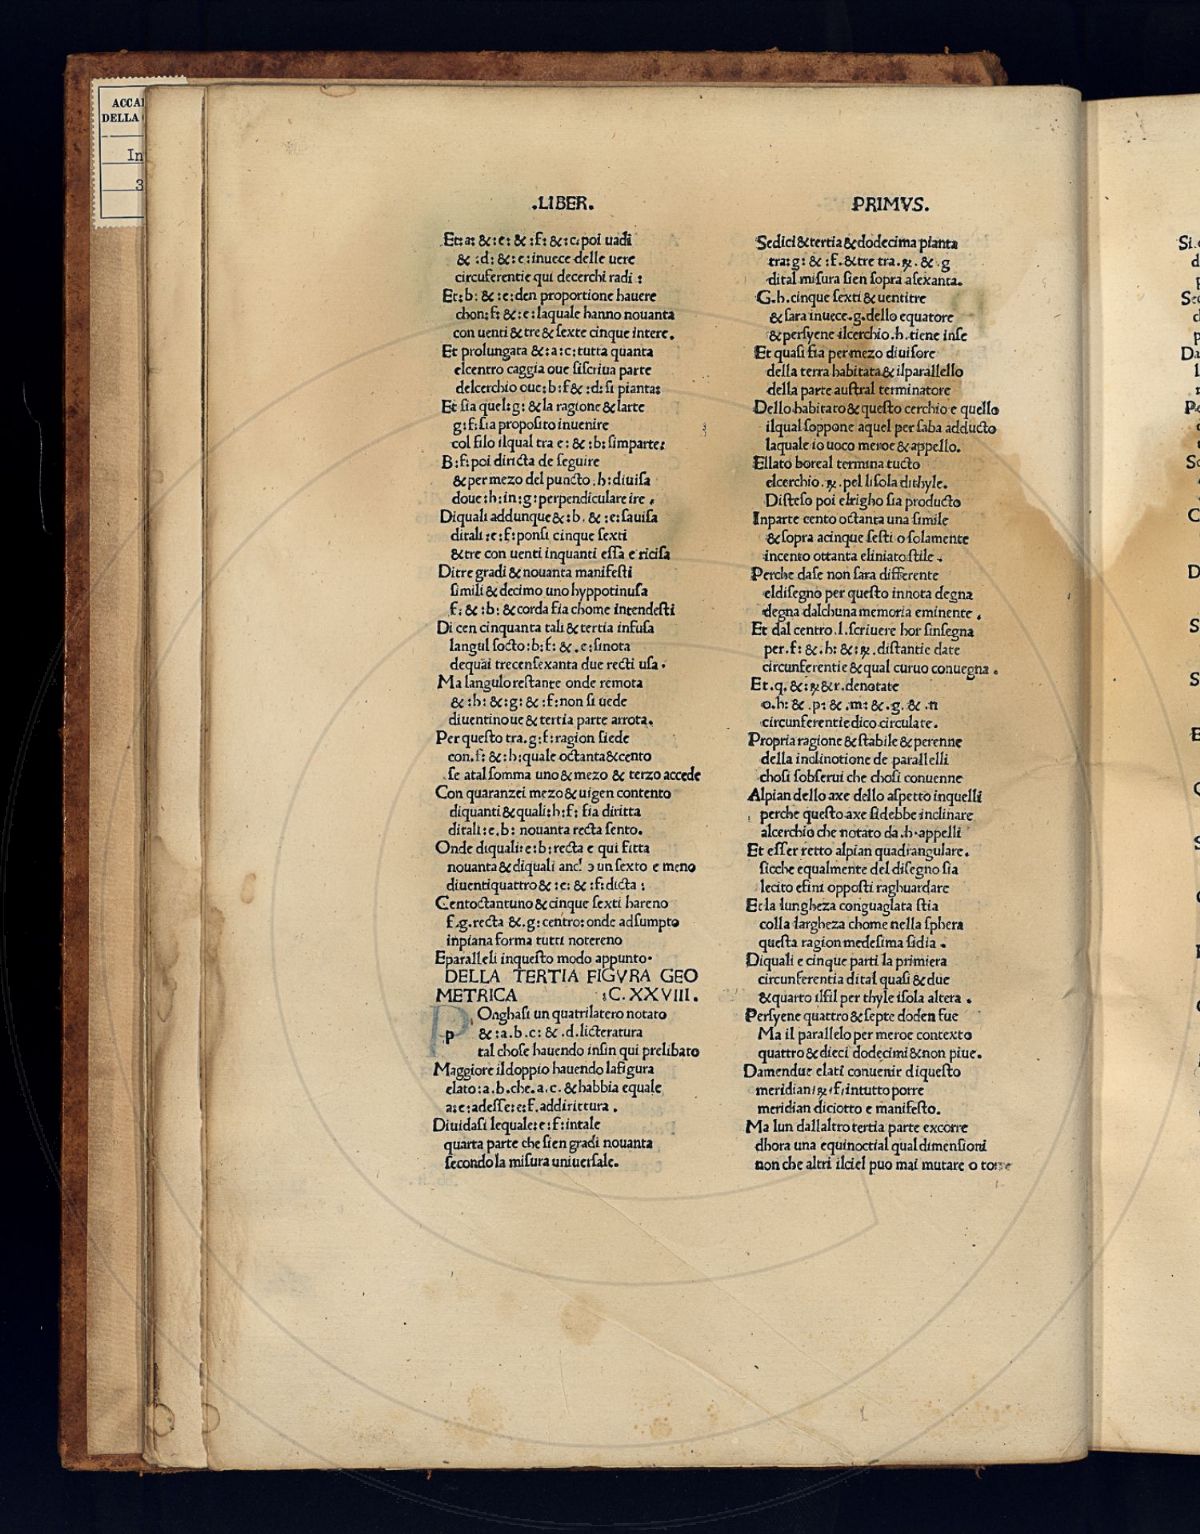 ACCA
DELLA
In
3
.LIBER.
Et:a: &:e: & :f: &:c.poi uadi
& :d: &:e:inuece delle uere
circuferentie qui decerchi radi :
Et:b: & :e:den proportione hauere
chon:f: &:e:laquale hanno nouanta
con uenti & tre & sexte cinque intere.
Et prolungata &:a:c:tutta quanta
elcentro caggia oue siscriua parte
delcerchio oue:b:f& :d:si pianta:
Et sia quel:g: & la ragione & larte
g:f:sia proposito inuenire
col filo ilqual tra e: & :b:simparte:
B:f:poi diricta de seguire
& per mezo del puncto.h:diuisa
doue:h:in:g:perpendiculare ire .
Diquali addunque & :b. & :e:sauisa
ditali:e:f:ponsi cinque sexti
& tre con uenti inquanti essa e ricisa
Ditre gradi & nouanta manifesti
simili & decimo uno hyppotinusa
f: & :b: & corda sia chome intendesti
Di cen cinquanta tali & tertia infusa
langul socto:b:f: & .e:sinota
dequai trecensexanta due recti usa.
Ma langulo restante onde remota
& :h: &:g: & :f:non si uede
diuentinoue & tertia parte arrota.
Per questo tra.g:f:ragion siede
con.f: & :h:quale octanta&cento
se atal somma uno & mezo & terzo accede
Con quaranzei mezo & uigen contento
diquanti & quali:h:f: fia diritta
ditali:e.b: nouanta recta sento.
Onde diquali:e:b:recta e qui fitta
nouanta & diquali un sexto e meno
diuentiquattro & :e: & :f:dicta :
Centoctantuno & cinque sexti hareno
f.g.recta &.g:centro:onde adsumpto
inpiana forma tutti notereno
Eparalleli inquesto modo appunto.
DELLA TERTIA FIGVRA GEO
METRICA :C. XXVIII.
p Onghasi un quatrilatero notato
& :a.b.c: & .d.licteratura
tal chose hauendo insin qui prelibato
Maggiore il doppio hauendo lafigura
elato:a.b.che.a.c. & habbia equale
a:e:adesse:e:f.addirittura .
Diuidasi lequale:e:f:intale
quarta parte che sien gradi nouanta
secondo la misura uniuersale.
PRIMVS.
Sedici & tertia & dodecima pianta
tra:g: & :f.&tre tra.ꝶ. & .g
dital misura sien sopra asexanta.
G.h.cinque sexti & uentitre
& sara inuece.g.dello equatore
& persyene ilcerchio.h.tiene inse
Et quasi fia per mezo diuisore
della terra habitata & ilparallello
della parte austral terminatore
Dello habitato & questo cerchio e quello
ilqual soppone aquel per saba adducto
laquale io uoco meroe & appello.
Ellato boreal termina tucto
elcerchio.ꝶ.pel lisola dithyle.
Disteso poi elrigho sia producto
Inparte cento octanta una simile
& sopra acinque sesti o solamente
incento ottanta eliniato stile .
Perche dase non sara differente
eldisegno per questo innota degna
degna dalchuna memoria eminente .
Et dal centro.l.scriuere hor sinsegna
per.f: &.h: &:ꝶ.distantie date
circunferentie & qual curuo conuegna .
Et.q. &:ꝶ&r.denotate
o.h: & .p: & .m: & .g. & .n
circunferentie dico circulate.
Propria ragione & stabile & perenne
della inclinotione de parallelli
chosi sobserui che chosi conuenne
Alpian dello axe dello aspetto inquelli
perche questo axe sidebbe inclinare
alcerchio che notato da.h.appelli
Et esser retto alpian quadrangulare.
sicche equalmente del disegno sia
lecito efini opposti raghuardare
Et la lungheza conguaglata stia
colla largheza chome nella sphera
questa ragion medesima sidia .
Diquali e cinque parti la primiera
circunferentia dital quasi & due
& quarto ilfil per thyle isola altera .
Persyene quattro & septe doden fue
Ma il parallelo per meroe contexto
quattro & dieci dodecimi & non piue.
Damendue elati conuenir diquesto
meridian:ꝶ:f:intutto porre
meridian diciotto e manifesto.
Ma lun dallaltro tertia parte excorre
dhora una equinoctial qual dimensioni
non che altri ilciel puo mai mutare o torre